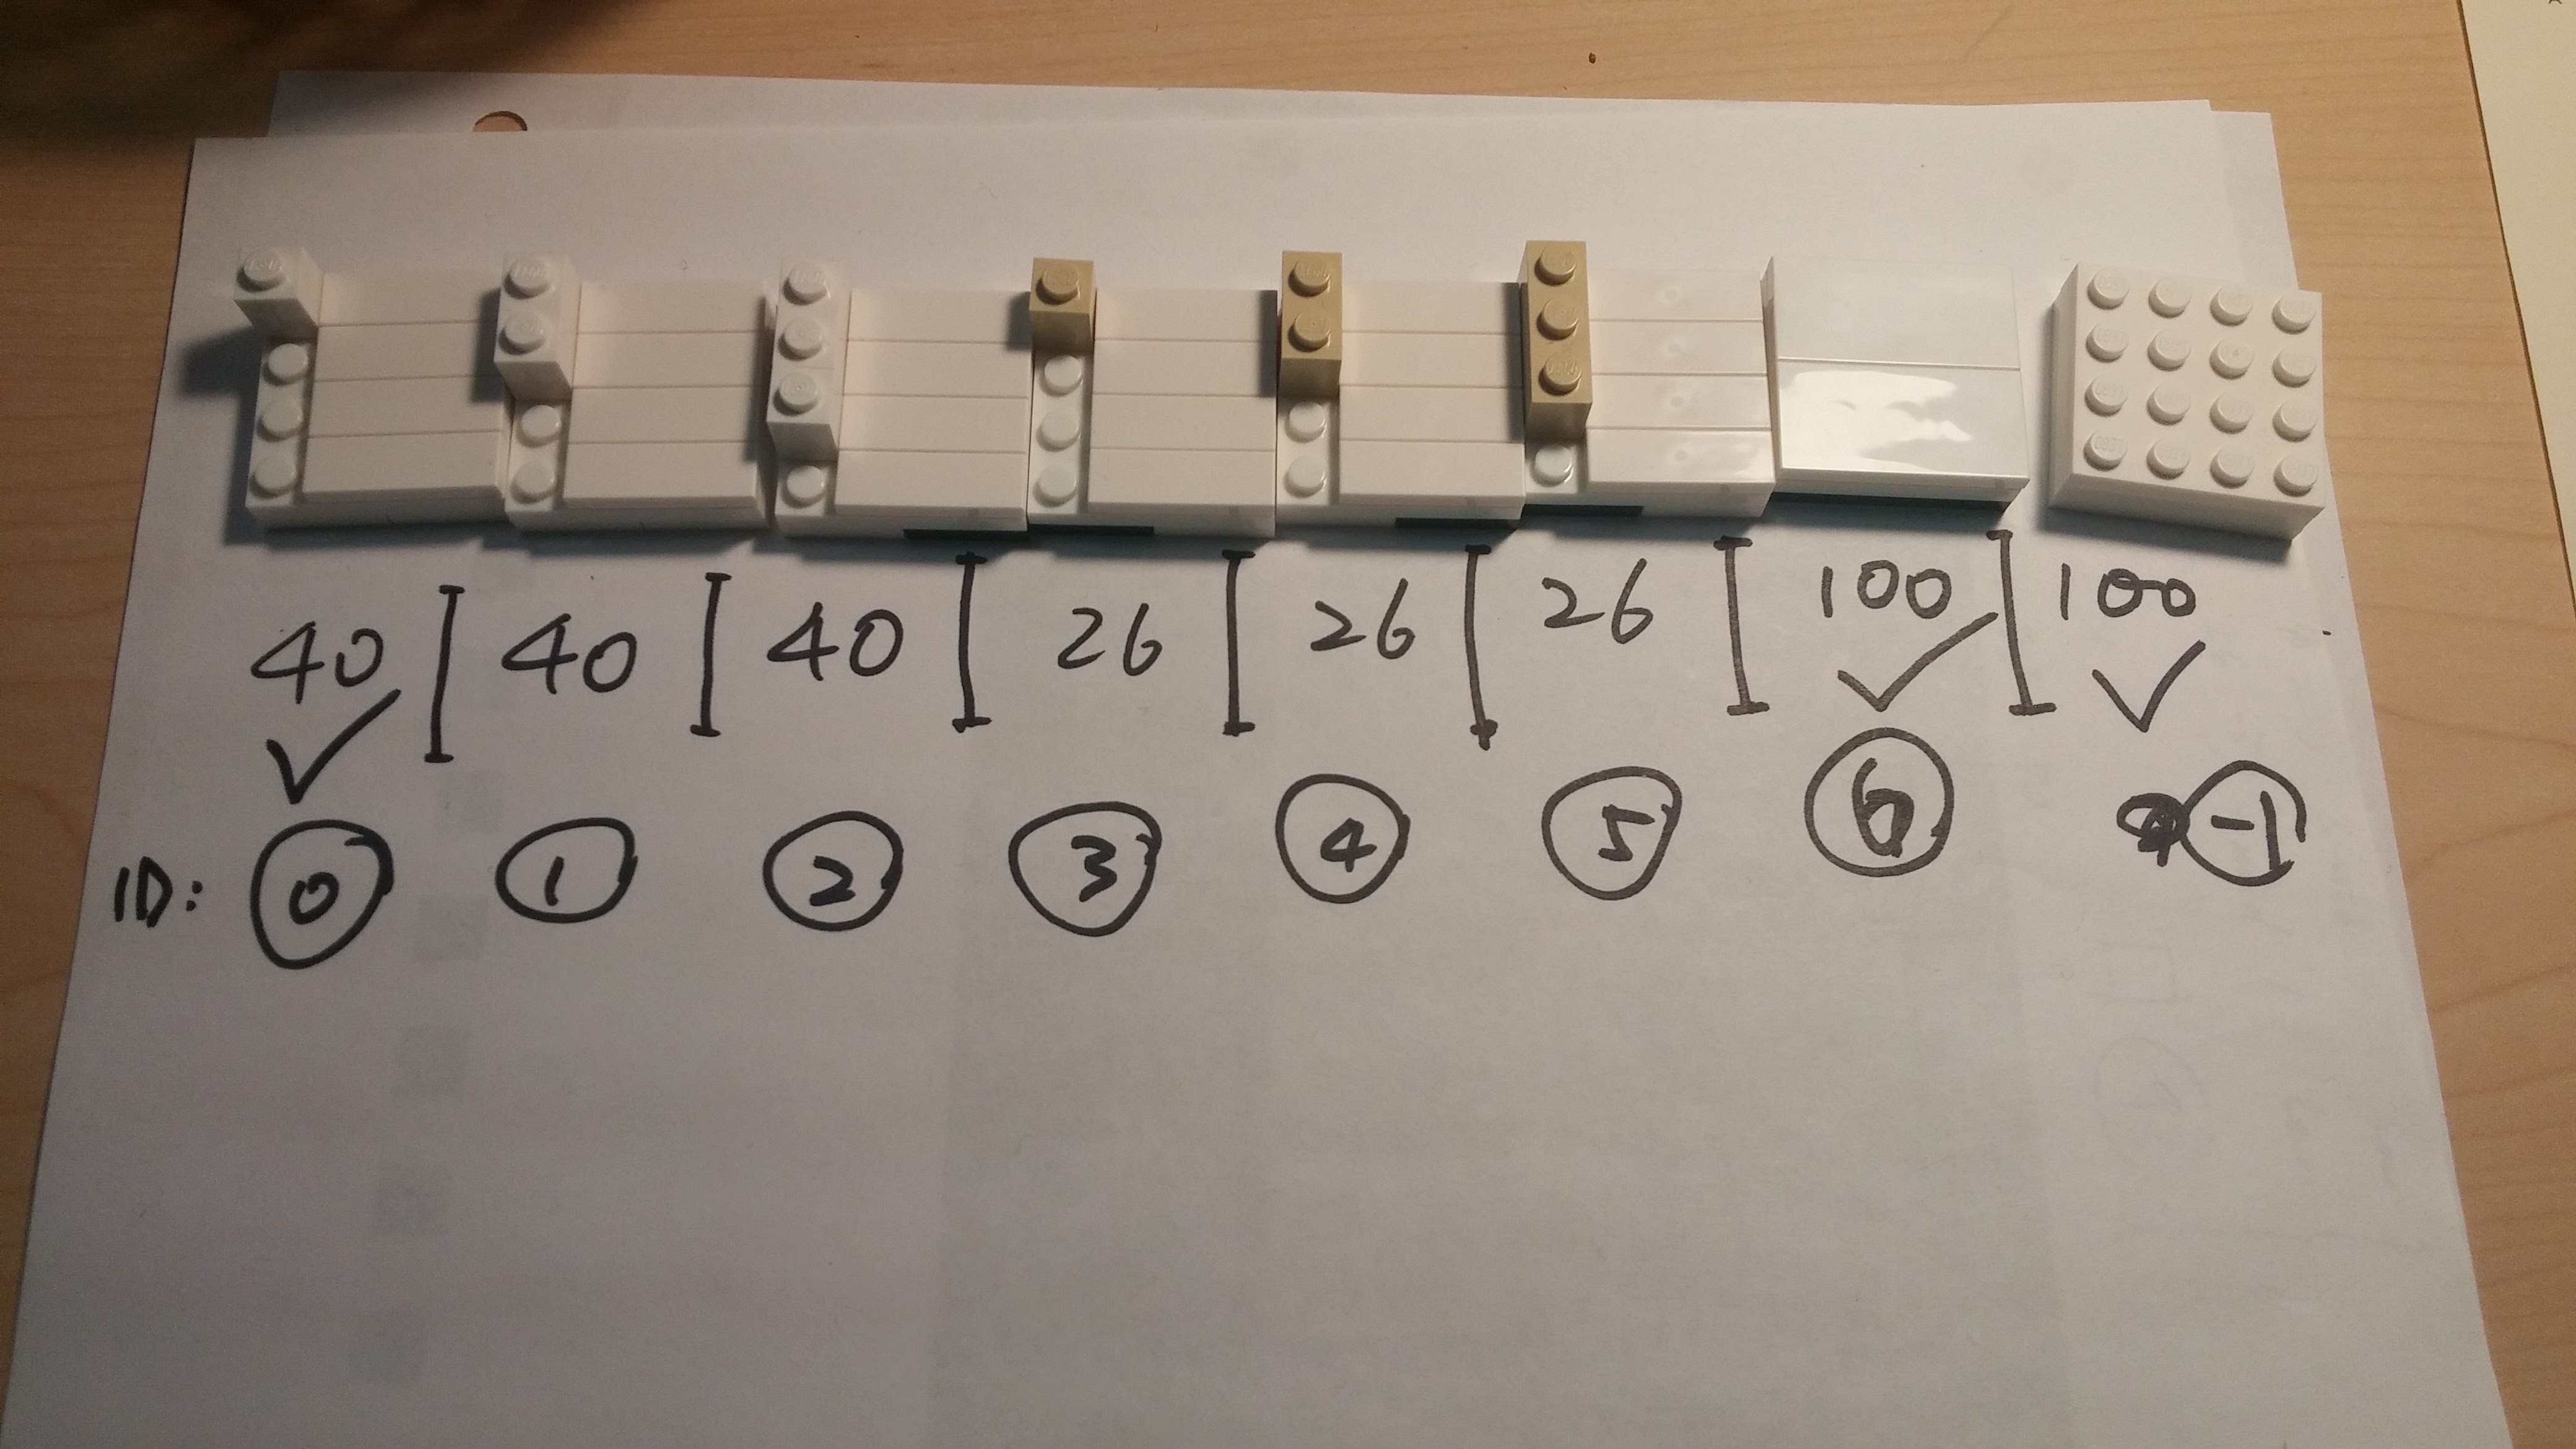 40 | 40 | 40 | 26 | 26 | 26 | 100 | 100
✓ ✓ ✓
ID: 0 1 2 3 4 5 6 -1